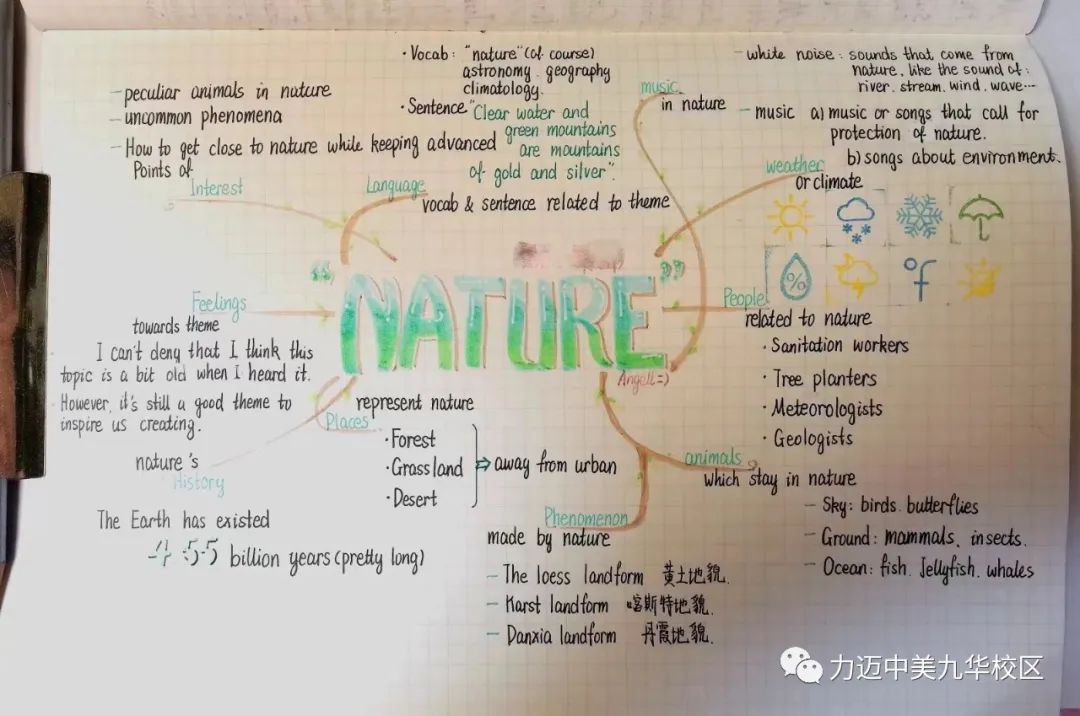 · Vocab: "nature" (of course)
astronomy. geography
climatology.
· Sentence "Clear water and
green mountains
are mountains
of gold and silver".
Language
vocab & sentence related to theme
– peculiar animals in nature
– uncommon phenomena
– How to get close to nature while keeping advanced
Points of
Interest
music
in nature
– white noise: sounds that come from
nature. like the sound of:
river. stream. wind. wave...
– music a) music or songs that call for
protection of nature.
b) songs about environment.
weather
or climate
%
°F
"NATURE"
Angell =)
People
related to nature
· Sanitation workers
· Tree planters
· Meteorologists
· Geologists
Feelings
towards theme
I can't deny that I think this
topic is a bit old when I heard it.
However, it's still a good theme to
inspire us creating.
Places
represent nature
· Forest
· Grassland
· Desert
⇒ away from urban
nature's
History
The Earth has existed
4.55 billion years (pretty long)
Phenomenon
made by nature
– The loess landform 黄土地貌.
– Karst landform 喀斯特地貌.
– Danxia landform 丹霞地貌.
animals
which stay in nature
– Sky: birds. butterflies
– Ground: mammals. insects.
– Ocean: fish. Jellyfish. whales
力迈中美九华校区